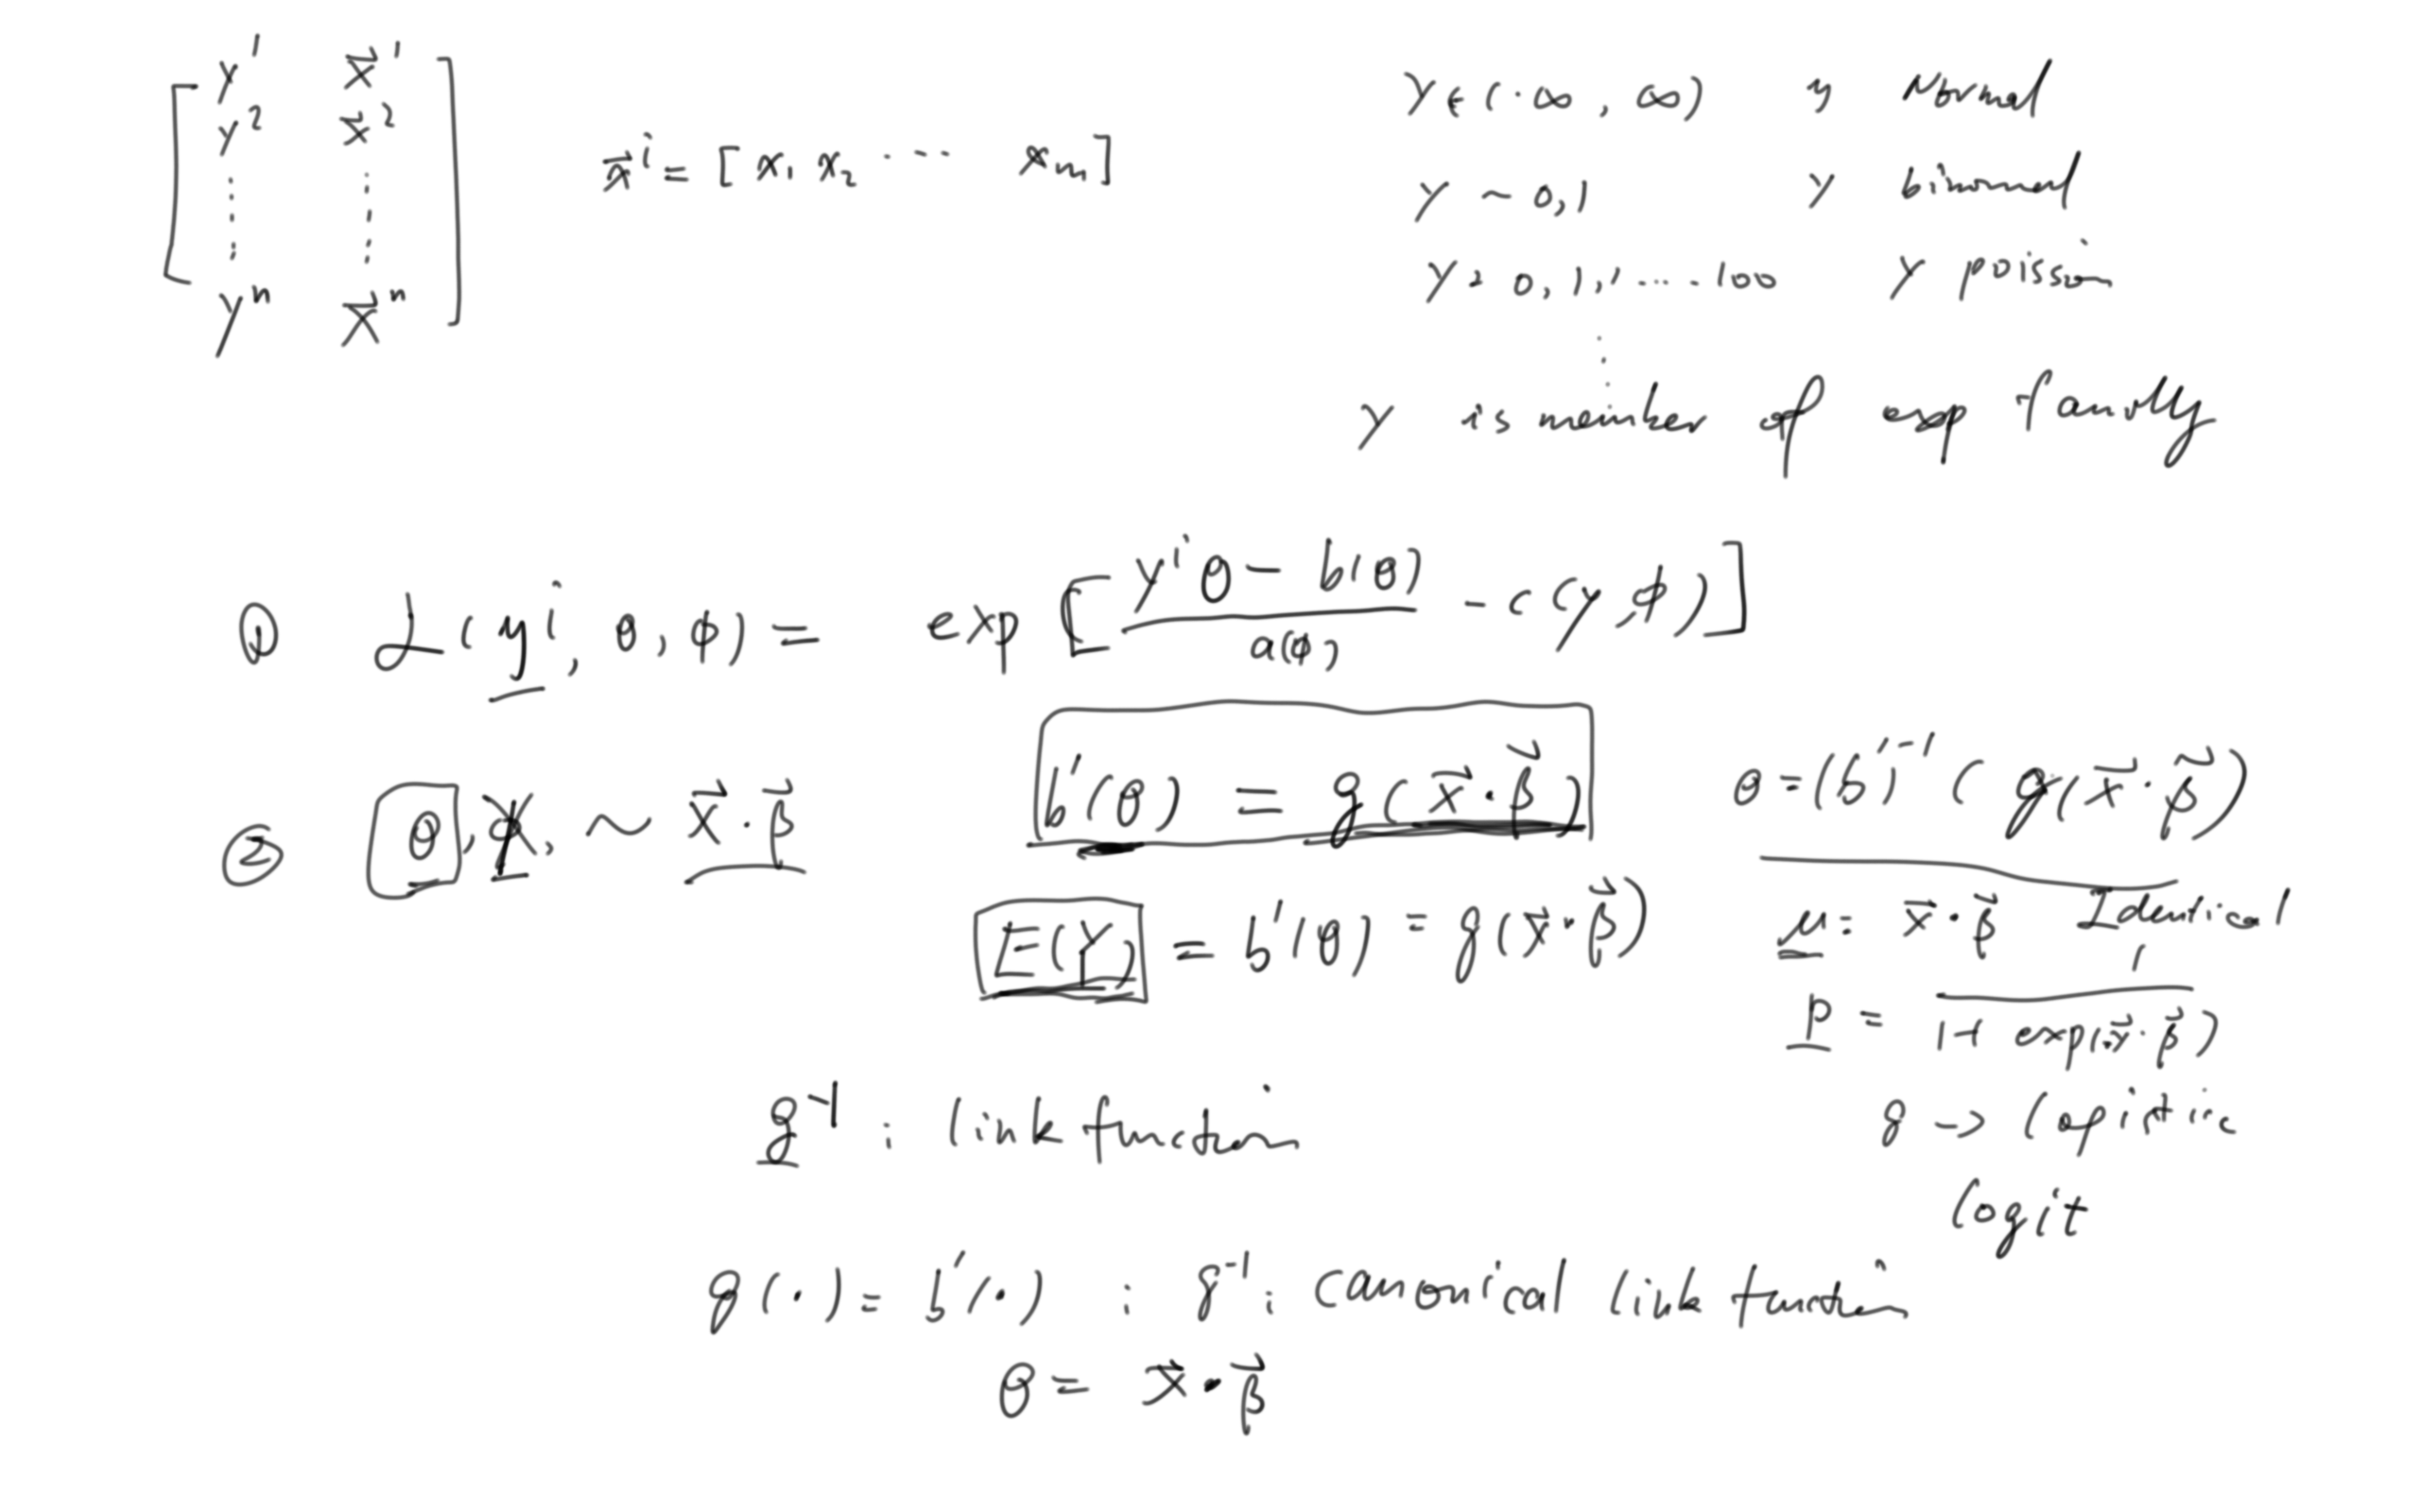 y¹ x⃗¹
y² x⃗²
⋮ ⋮
yⁿ x⃗ⁿ
x⃗ⁱ = [x₁ x₂ ⋯ xₘ]
Y ∈ (-∞, ∞) y Normal
Y ~ 0, 1 Y binomial
Y = 0, 1, ⋯ 100 Y poission
⋮
Y is member of exp family
① L(yⁱ, θ, φ) = exp[(yⁱθ - b(θ))/a(φ) - c(y, φ)]
② θ, φ, ~ x⃗·β⃗
b'(θ) = g(x⃗·β⃗)
θ = (b')⁻¹(g(x⃗·β⃗)
E(Y) = b'(θ) = g(x⃗·β⃗)
μ = x⃗·β⃗ Identical
P = 1/(1+exp(x⃗·β⃗)
g⁻¹ : link function
g -> logistic
logit
g(·) = b'(·) : g⁻¹: canonical link function
θ = x⃗·β⃗